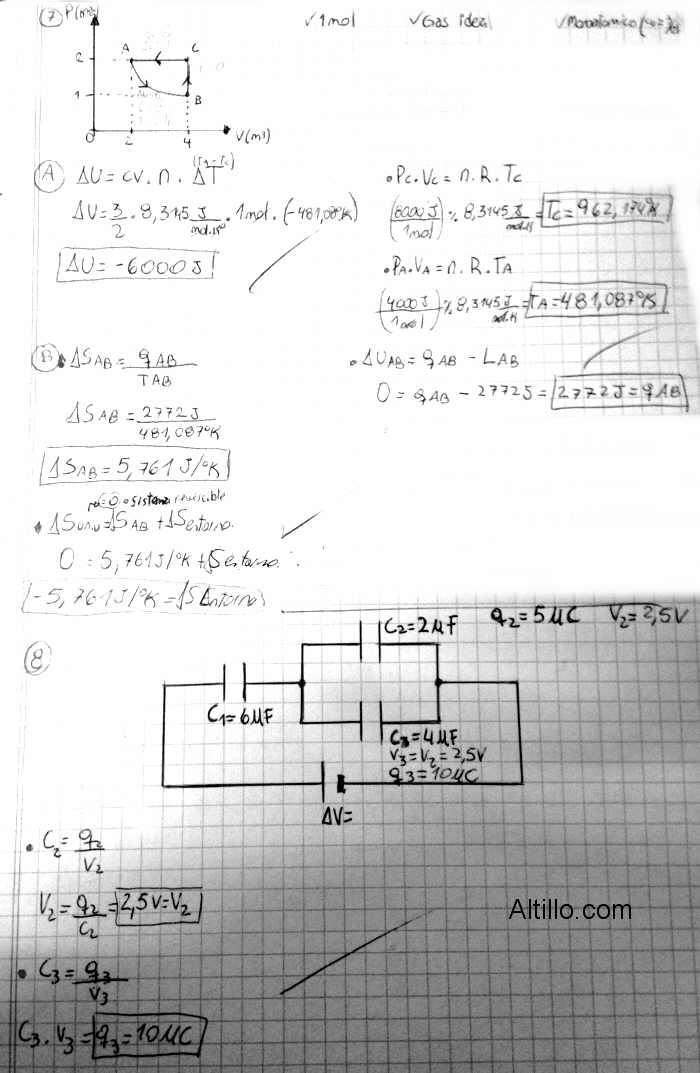 7 P(
✓1mol ✓Gas ideal
A C
2
1
B
0 2 4 V(m³)
A ΔU = cv . n . ΔT
ΔU = 3/2 . 8,3145 J/mol.K° . 1mol . (-481,08°K)
ΔU = -6000J
• Pc. Vc = n. R. Tc
(8000J/1mol) % 8,3145 J/mol.K = Tc = 962,174°K
• PA. VA = n. R. TA
(4000J/1mol) % 8,3145 J/mol.K = TA = 481,087°K
B • ΔSAB = qAB/TAB
ΔSAB = 2772J/481,087°K
ΔSAB = 5,761J/°K
• ΔUAB = qAB - LAB
0 = qAB - 2772J = 2772J = qAB
=0 • sistema reversible
• ΔSuniv = ΔSAB + ΔSentorno.
0 = 5,761J/°K + ΔSentorno
-5,761J/°K = ΔSEntorno
8
C2=2μF q2=5μC V2=2,5V
C1=6μF
C3=4μF
V3=V2=2,5V
q3=10μC
ΔV=
• C2 = q2/V2
V2 = q2/C2 = 2,5V=V2
Altillo.com
• C3 = q3/V3
C3. V3 = q3=10μC